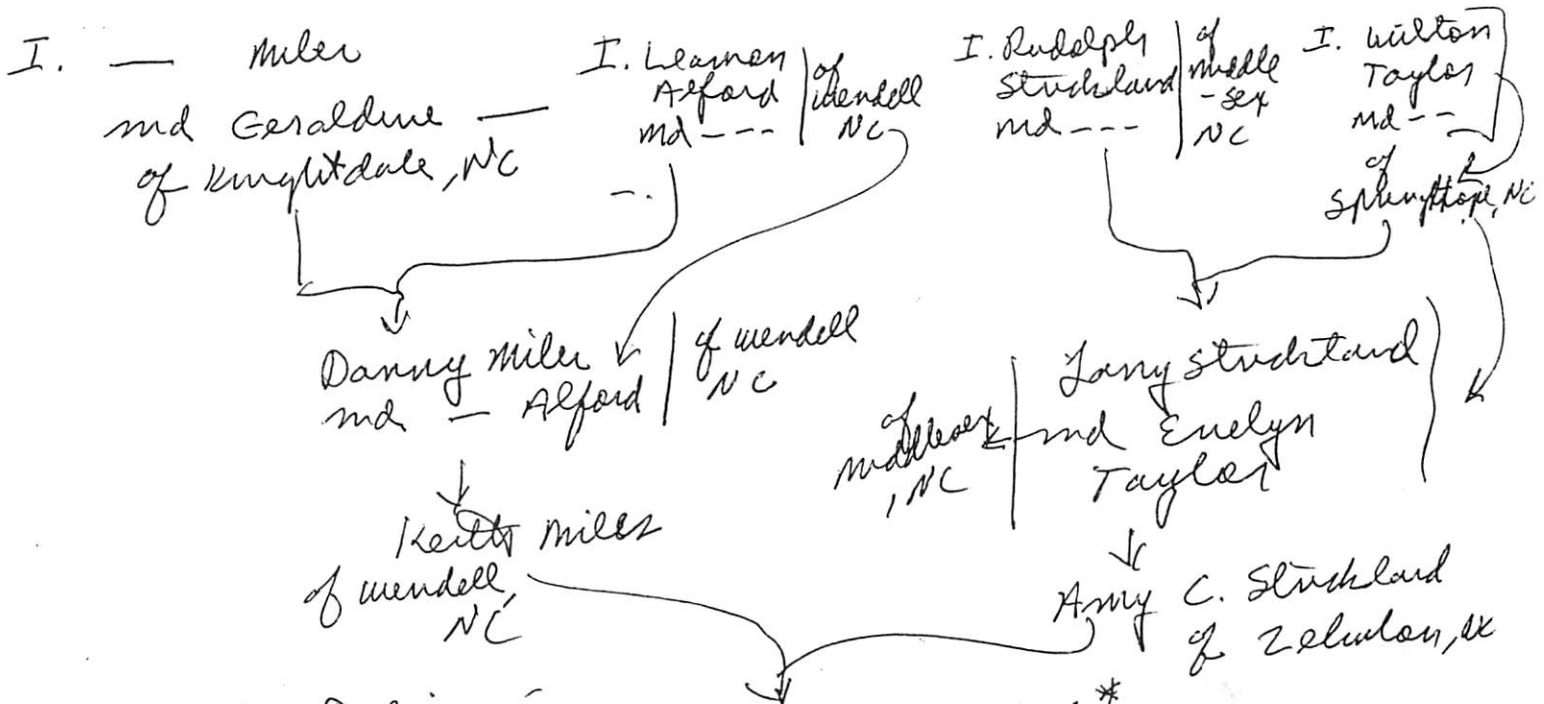 I. — Miles
md Geraldine —
of Knightdale, NC
I. Leamon
Alford
md ---
of
Wendell
NC
I. Rudolph
Strickland
md ---
of
Middle
-sex
NC
I. Wilton
Taylor
md --
of
Springhope, NC
Danny Miles
md — Alford
of Wendell
NC
Larry Strickland
md Evelyn
Taylor
of
Middlesex
, NC
Keith Miles
of Wendell,
NC
Amy C. Strickland
of Zebulon, NC
*